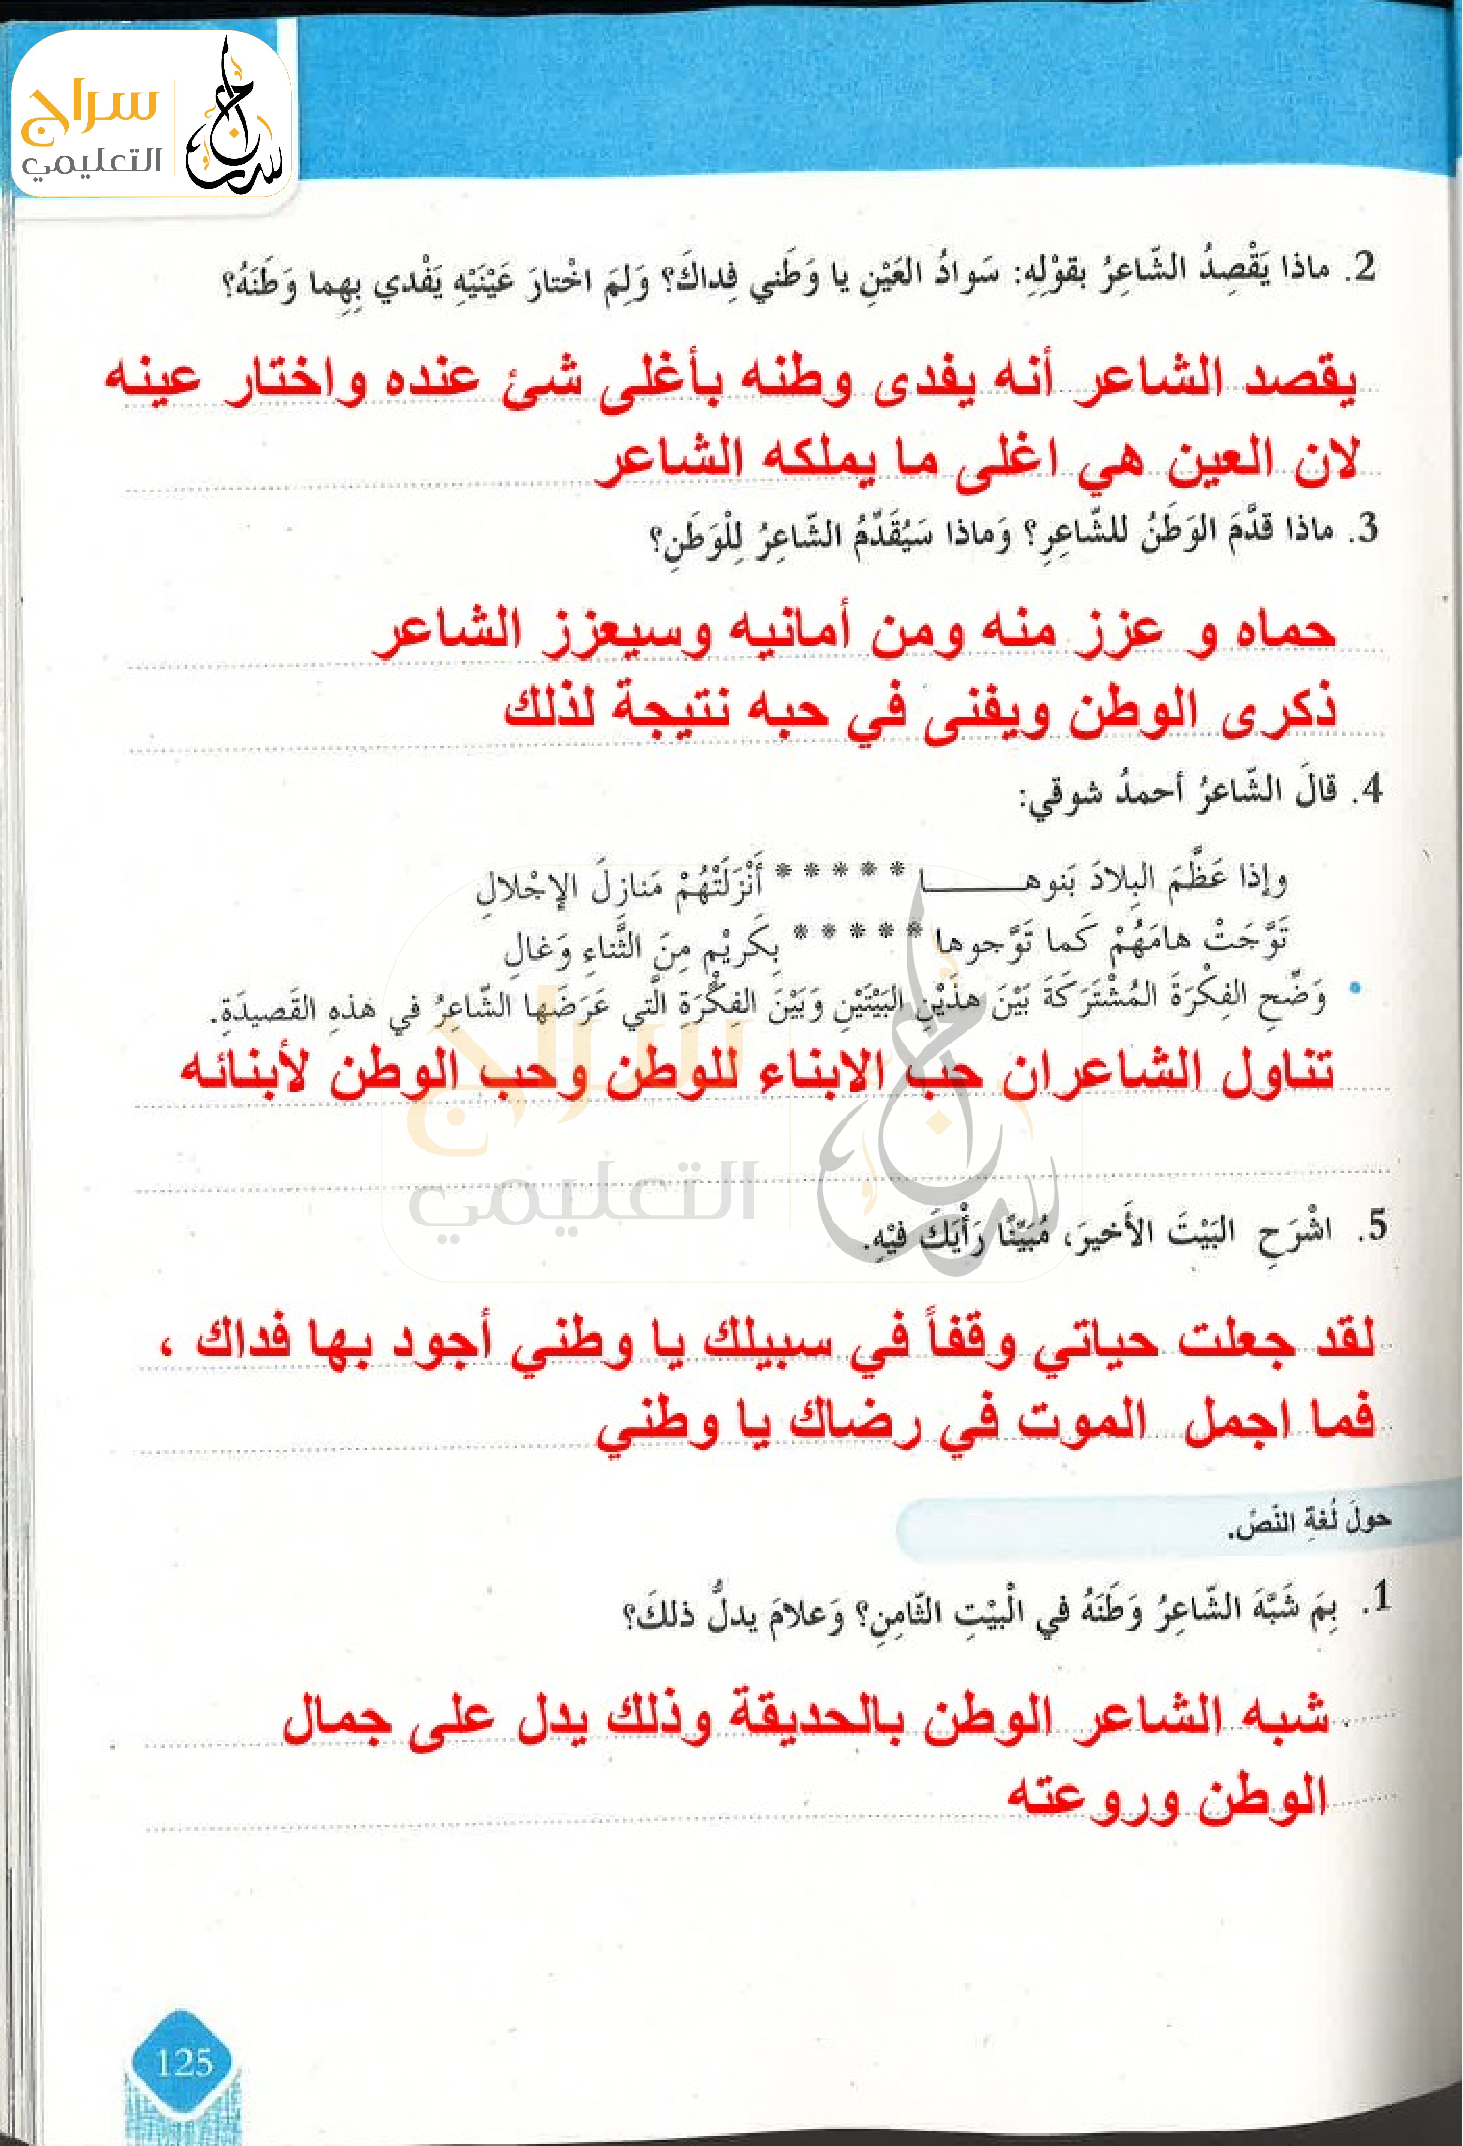 سراج
التعليمي
2. ماذا يَقْصِدُ الشّاعِرُ بقوْلِهِ: سَوادُ العَيْنِ يا وَطَني فِداكَ؟ وَلِمَ اخْتارَ عَيْنَيْهِ يَفْدي بِهِما وَطَنَهُ؟
يقصد الشاعر أنه يفدى وطنه بأغلى شئ عنده واختار عينه
لان العين هي اغلى ما يملكه الشاعر
3. ماذا قدَّمَ الوَطَنُ للشّاعِرِ؟ وَماذا سَيُقَدِّمُ الشّاعِرُ لِلْوَطَنِ؟
حماه و عزز منه ومن أمانيه وسيعزز الشاعر
ذكرى الوطن ويفنى في حبه نتيجة لذلك
4. قالَ الشّاعرُ أحمدُ شوقي:
وإذا عَظَّمَ البِلادَ بَنوهــــــــا * * * * * أَنْزَلَتْهُمْ مَنازِلَ الإِجْلالِ
تَوَّجَتْ هامَهُمْ كَما تَوَّجوها * * * * * بِكَريْمٍ مِنَ الثَّناءِ وَغالِ
• وَضِّحِ الفِكْرَةَ المُشْتَرَكَةَ بَيْنَ هذَيْنِ البَيْتَيْنِ وَبَيْنَ الفِكْرَةِ الَّتي عَرَضَها الشّاعِرُ في هذهِ القَصيدَةِ.
تناول الشاعران حب الابناء للوطن وحب الوطن لأبنائه
سراج
التعليمي
5. اشْرَحِ البَيْتَ الأَخيرَ، مُبَيِّنًا رَأْيَكَ فيْهِ.
لقد جعلت حياتي وقفاً في سبيلك يا وطني أجود بها فداك ،
فما اجمل الموت في رضاك يا وطني
حولَ لُغةِ النّصّ.
1. بِمَ شَبَّهَ الشّاعِرُ وَطَنَهُ في الْبيْتِ الثّامِنِ؟ وَعلامَ يدلُّ ذلكَ؟
شبه الشاعر الوطن بالحديقة وذلك يدل على جمال
الوطن وروعته
125